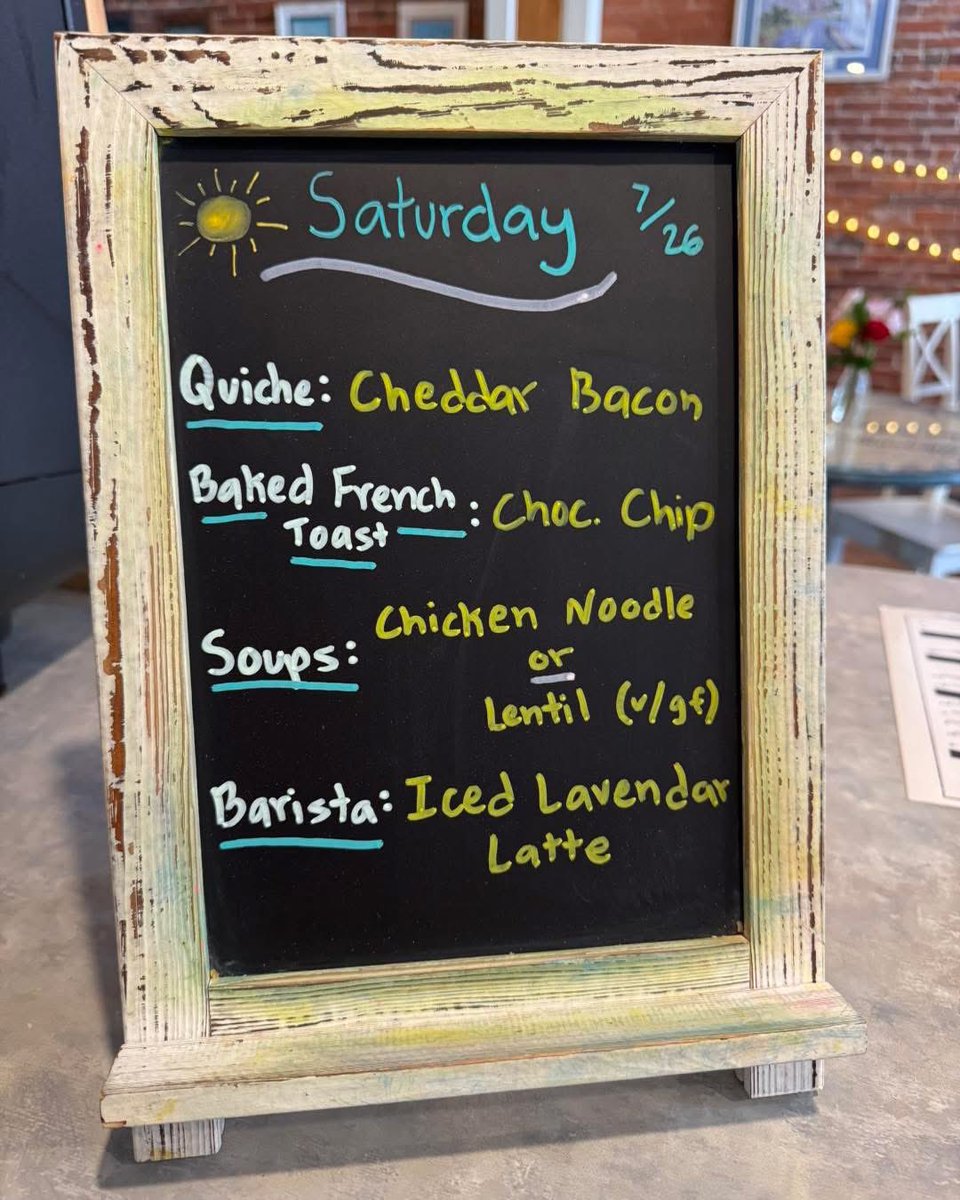 Saturday 7/26
Quiche: Cheddar Bacon
Baked French
Toast : Choc. Chip
Soups: Chicken Noodle
or
Lentil (v/gf)
Barista: Iced Lavendar
Latte